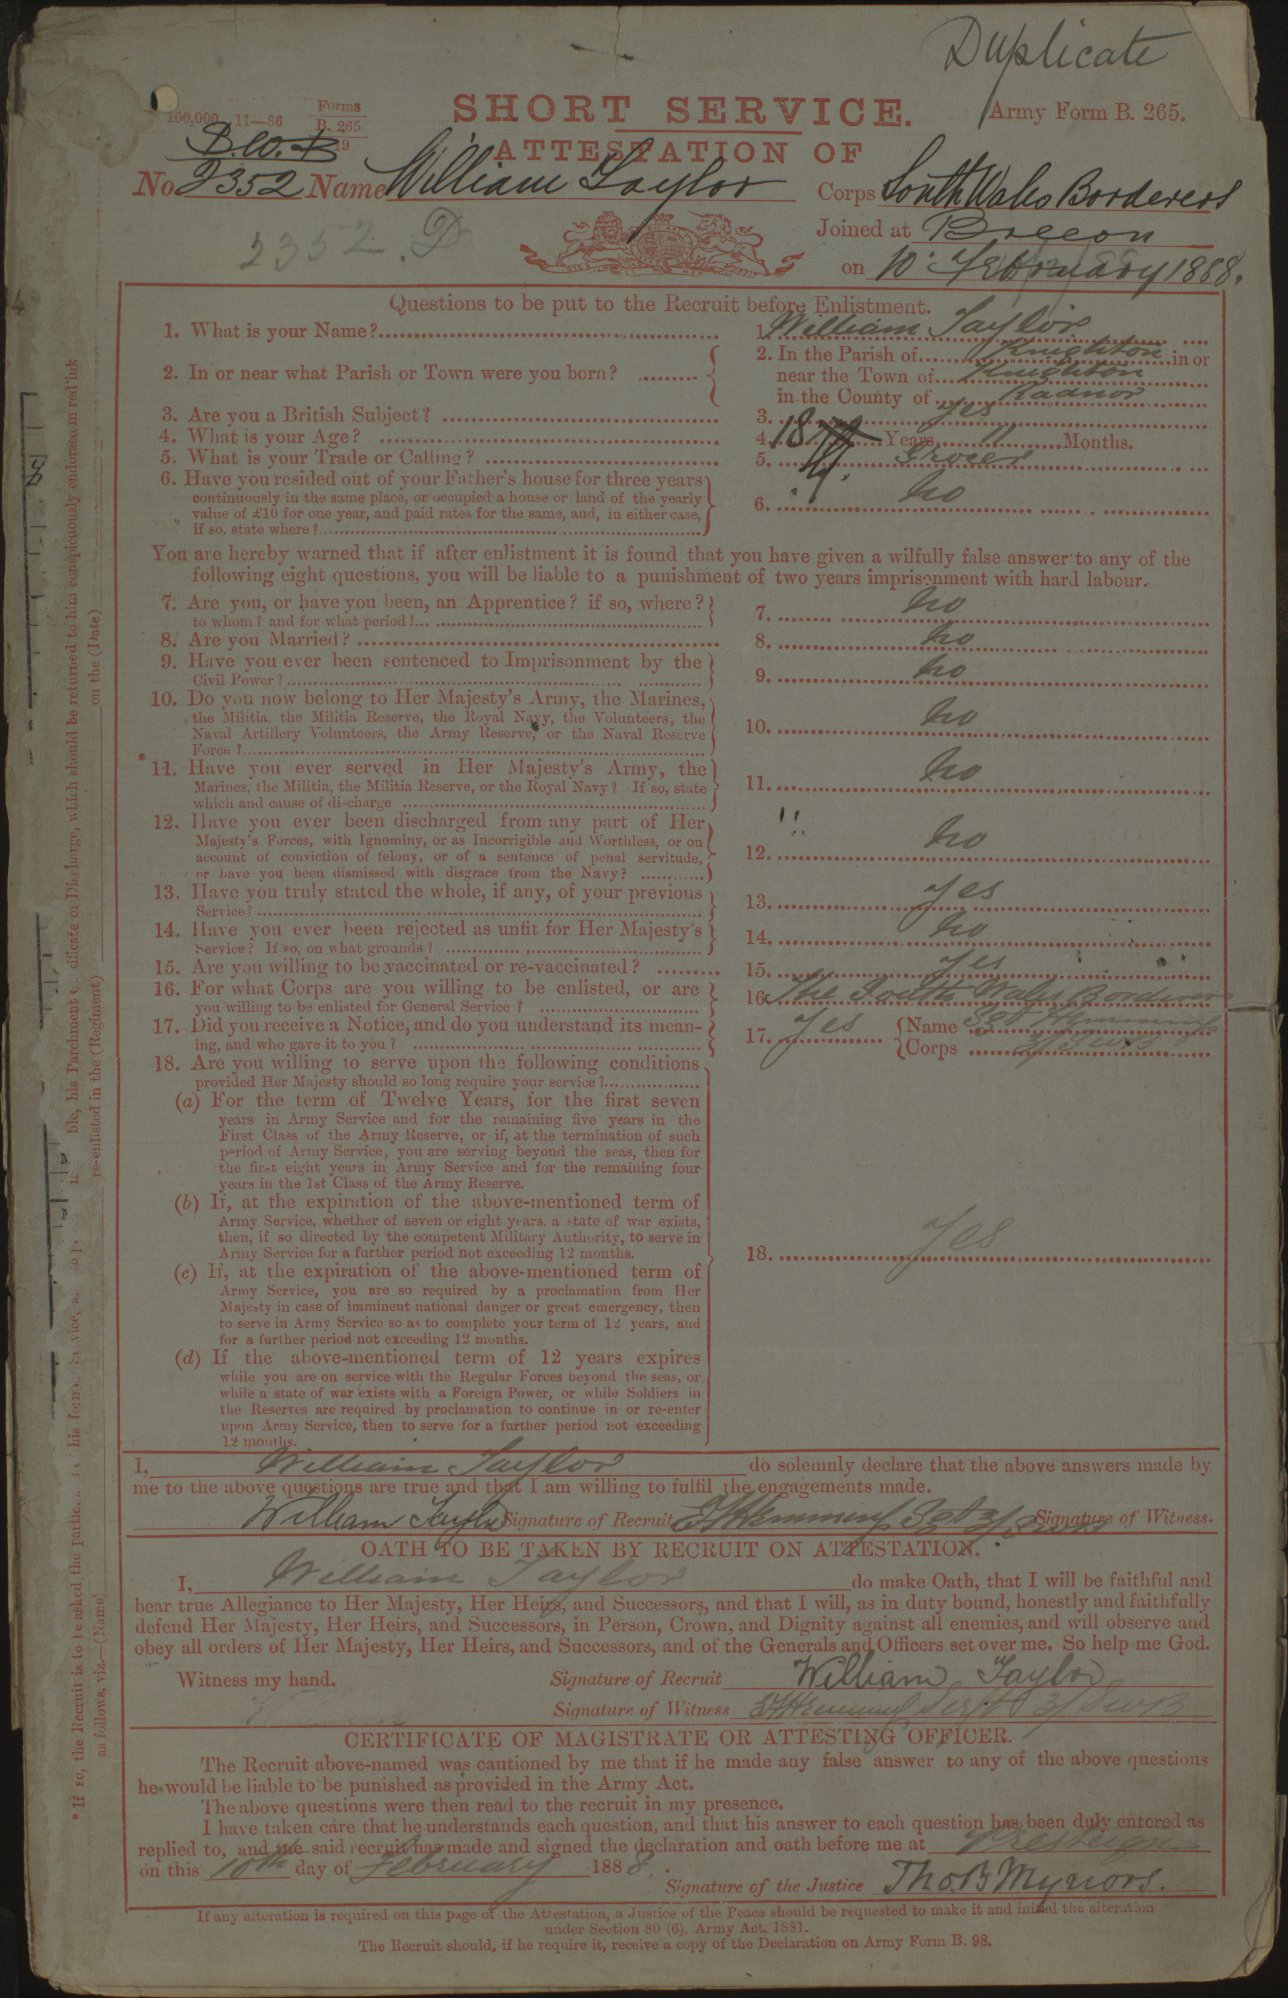 Duplicate
100,000 11—86 Forms B. 265 19
SHORT SERVICE.
Army Form B. 265.
ATTESTATION OF
No 2352 Name William Taylor Corps South Wales Borderers
2352. D
Joined at Brecon
on 10 February 1888.
Questions to be put to the Recruit before Enlistment.
1. What is your Name? 1. William Taylor
2. In or near what Parish or Town were you born? 2. In the Parish of Knighton in or
near the Town of Knighton
in the County of Radnor
3. Are you a British Subject? 3. Yes
4. What is your Age? 4. 18 Years, 11 Months.
5. What is your Trade or Calling? 5. Grocer
6. Have you resided out of your Father's house for three years
continuously in the same place, or occupied a house or land of the yearly
value of £10 for one year, and paid rates for the same, and, in either case,
if so, state where? 6. No
You are hereby warned that if after enlistment it is found that you have given a wilfully false answer to any of the
following eight questions, you will be liable to a punishment of two years imprisonment with hard labour.
7. Are you, or have you been, an Apprentice? if so, where?
to whom? and for what period? 7. No
8. Are you Married? 8. No
9. Have you ever been sentenced to Imprisonment by the
Civil Power? 9. No
10. Do you now belong to Her Majesty's Army, the Marines,
the Militia, the Militia Reserve, the Royal Navy, the Volunteers, the
Naval Artillery Volunteers, the Army Reserve, or the Naval Reserve
Force? 10. No
11. Have you ever served in Her Majesty's Army, the
Marines, the Militia, the Militia Reserve, or the Royal Navy? If so, state
which and cause of discharge 11. No
12. Have you ever been discharged from any part of Her
Majesty's Forces, with Ignominy, or as Incorrigible and Worthless, or on
account of conviction of felony, or of a sentence of penal servitude,
or have you been dismissed with disgrace from the Navy? 12. No
13. Have you truly stated the whole, if any, of your previous
Service? 13. Yes
14. Have you ever been rejected as unfit for Her Majesty's
Service? If so, on what grounds? 14. No
15. Are you willing to be vaccinated or re-vaccinated? 15. Yes
16. For what Corps are you willing to be enlisted, or are
you willing to be enlisted for General Service? 16. The South Wales Borderers
17. Did you receive a Notice, and do you understand its mean-
ing, and who gave it to you? 17. Yes Name Sgt Hemming
Corps 3/SWB
18. Are you willing to serve upon the following conditions
provided Her Majesty should so long require your service?
(a) For the term of Twelve Years, for the first seven
years in Army Service and for the remaining five years in the
First Class of the Army Reserve, or if, at the termination of such
period of Army Service, you are serving beyond the seas, then for
the first eight years in Army Service and for the remaining four
years in the 1st Class of the Army Reserve.
(b) If, at the expiration of the above-mentioned term of
Army Service, whether of seven or eight years, a state of war exists,
then, if so directed by the competent Military Authority, to serve in
Army Service for a further period not exceeding 12 months.
18. Yes
(c) If, at the expiration of the above-mentioned term of
Army Service, you are so required by a proclamation from Her
Majesty in case of imminent national danger or great emergency, then
to serve in Army Service so as to complete your term of 12 years, and
for a further period not exceeding 12 months.
(d) If the above-mentioned term of 12 years expires
while you are on service with the Regular Forces beyond the seas, or
while a state of war exists with a Foreign Power, or while Soldiers in
the Reserves are required by proclamation to continue in or re-enter
upon Army Service, then to serve for a further period not exceeding
12 months.
I, William Taylor do solemnly declare that the above answers made by
me to the above questions are true and that I am willing to fulfil the engagements made.
William Taylor Signature of Recruit Hemming Sgt 3/SWB Signature of Witness.
OATH TO BE TAKEN BY RECRUIT ON ATTESTATION.
I, William Taylor do make Oath, that I will be faithful and
bear true Allegiance to Her Majesty, Her Heirs, and Successors, and that I will, as in duty bound, honestly and faithfully
defend Her Majesty, Her Heirs, and Successors, in Person, Crown, and Dignity against all enemies, and will observe and
obey all orders of Her Majesty, Her Heirs, and Successors, and of the Generals and Officers set over me. So help me God.
Witness my hand. Signature of Recruit William Taylor
Signature of Witness Hemming Sergt 3/SWB
CERTIFICATE OF MAGISTRATE OR ATTESTING OFFICER.
The Recruit above-named was cautioned by me that if he made any false answer to any of the above questions
he would be liable to be punished as provided in the Army Act.
The above questions were then read to the recruit in my presence.
I have taken care that he understands each question, and that his answer to each question has been duly entered as
replied to, and the said recruit has made and signed the declaration and oath before me at Presteign
on this 10th day of February 1888.
Signature of the Justice Tho. B Mynors.
If any alteration is required on this page of the Attestation, a Justice of the Peace should be requested to make it and initial the alteration
under Section 80 (6), Army Act, 1881.
The Recruit should, if he require it, receive a copy of the Declaration on Army Form B. 98.
* If so, the Recruit is to be asked the his former service, his Parchment Discharge, which should be returned to him conspicuously endorsed in red ink
as follows, viz.—(Name) re-enlisted in the (Regiment) on the (Date)